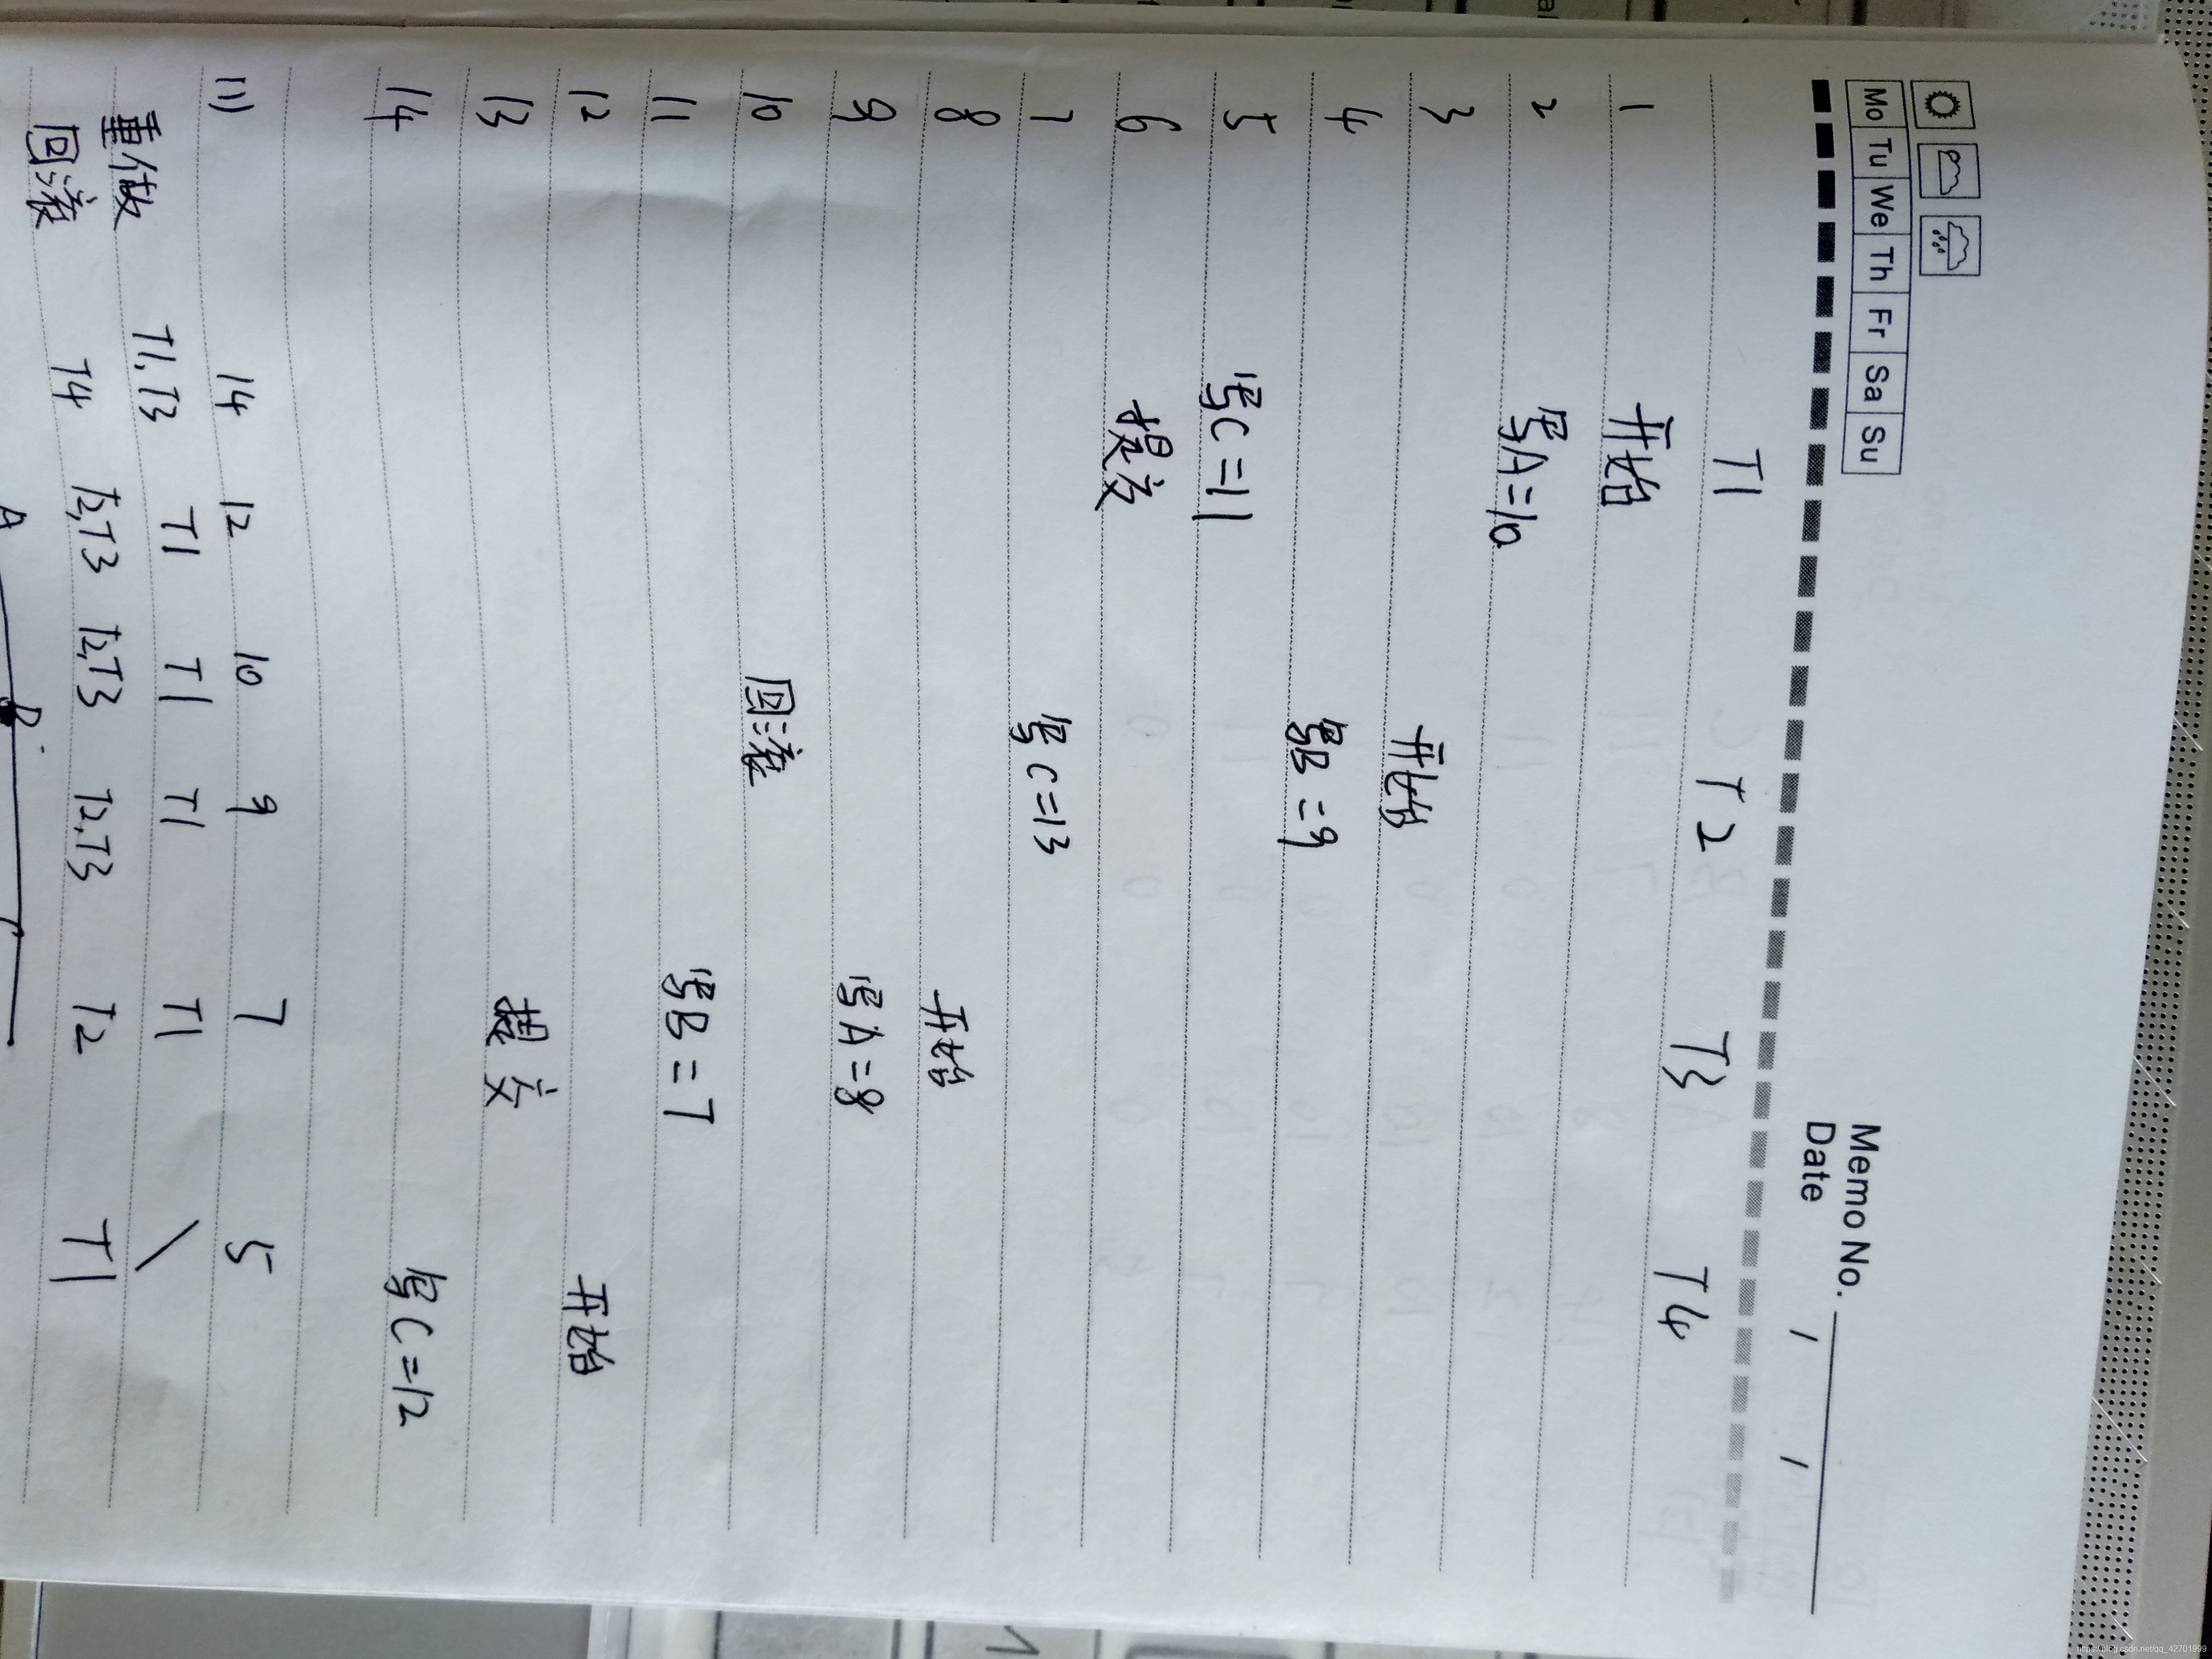 Mo Tu We Th Fr Sa Su
Memo No.
Date / /
T1 T2 T3 T4
1 开始
2 写A=10
3 开始
4 写B=9
5 写C=11
6 提交
7 写C=13
8 开始
9 写A=8
10 回滚
11 写B=7
12 开始
13 提交
14 写C=12
(1) 14 12 10 9 7 5
重做 T1,T3 T1 T1 T1 T1 \
回滚 T4 T2,T3 T2,T3 T2,T3 T2 T1
A B